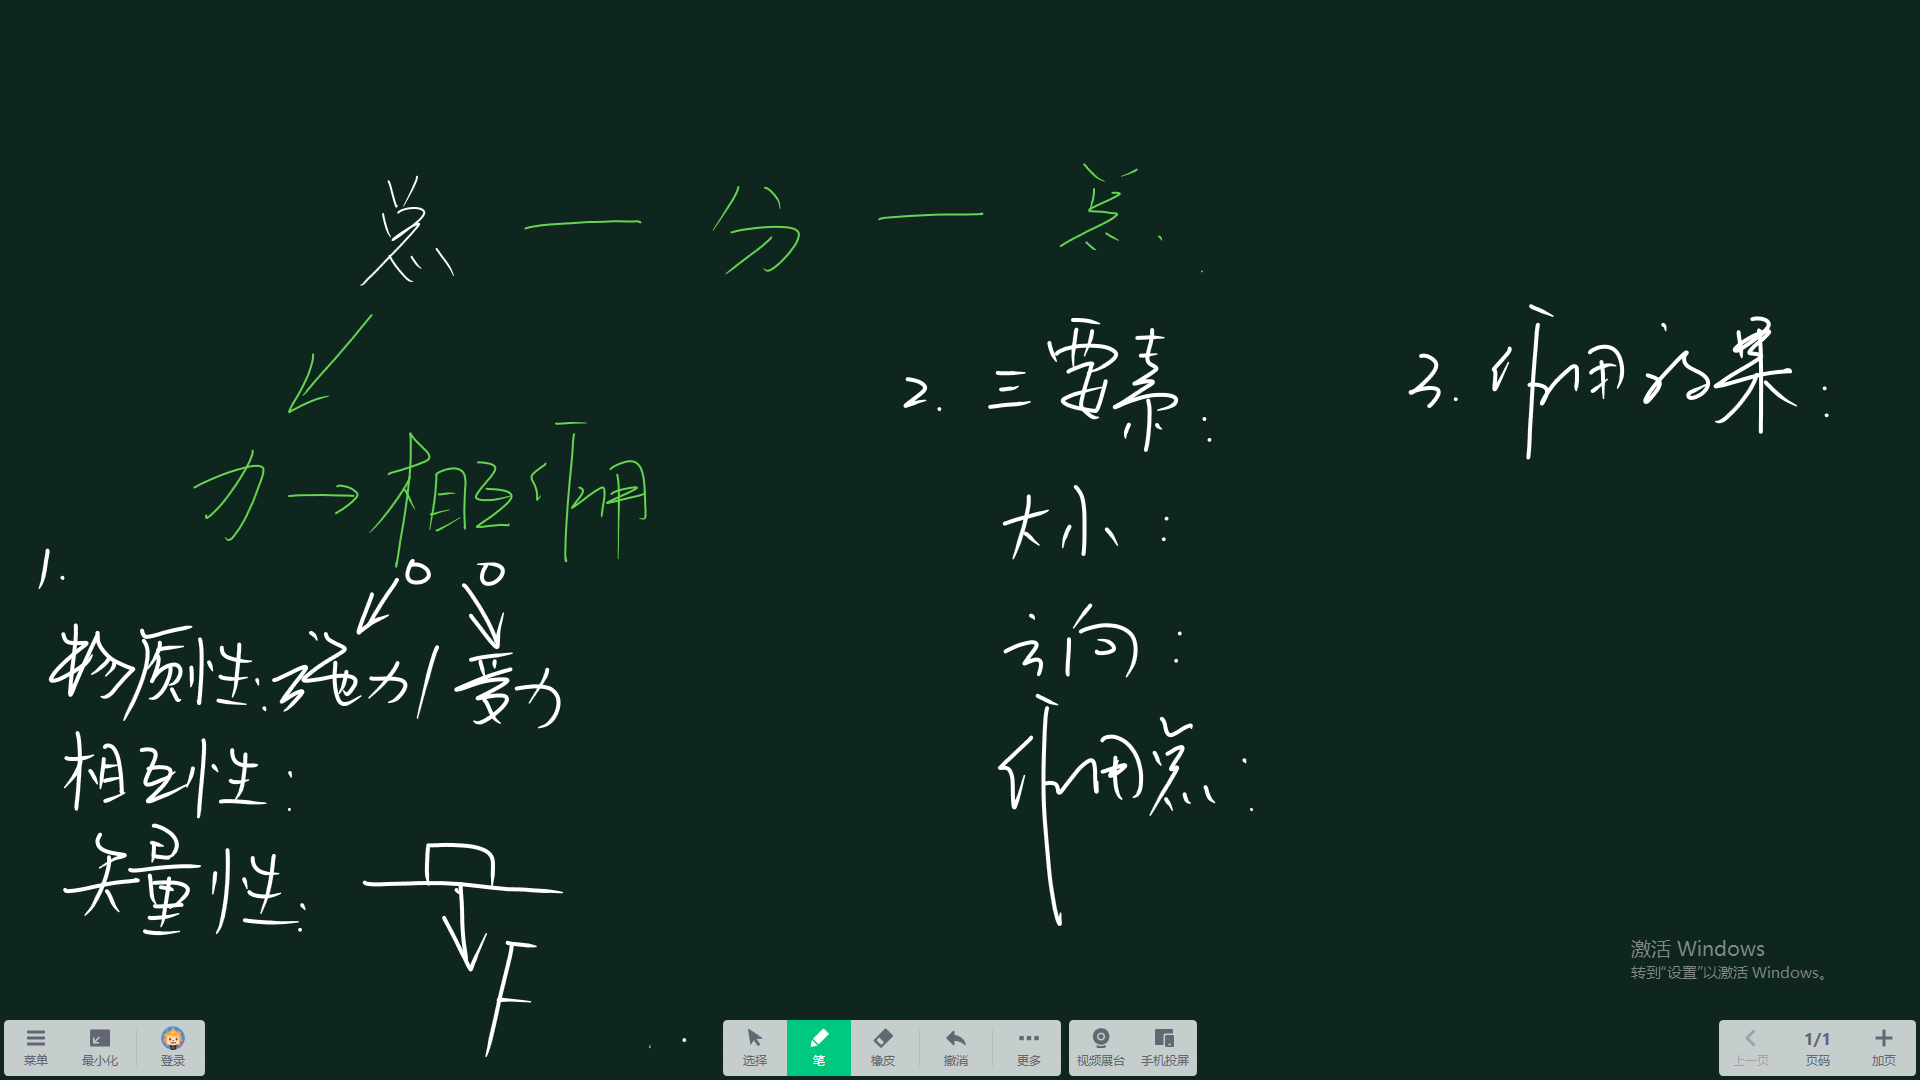 总 — 分 — 总.
力→相互作用
1.
物质性:施力/受力
相互性:
矢量性:
F
2. 三要素:
大小:
方向:
作用点:
3. 作用效果:
激活 Windows
转到“设置”以激活 Windows。
菜单 最小化 登录 选择 笔 橡皮 撤消 更多 视频展台 手机投屏 上一页 1/1 页码 加页